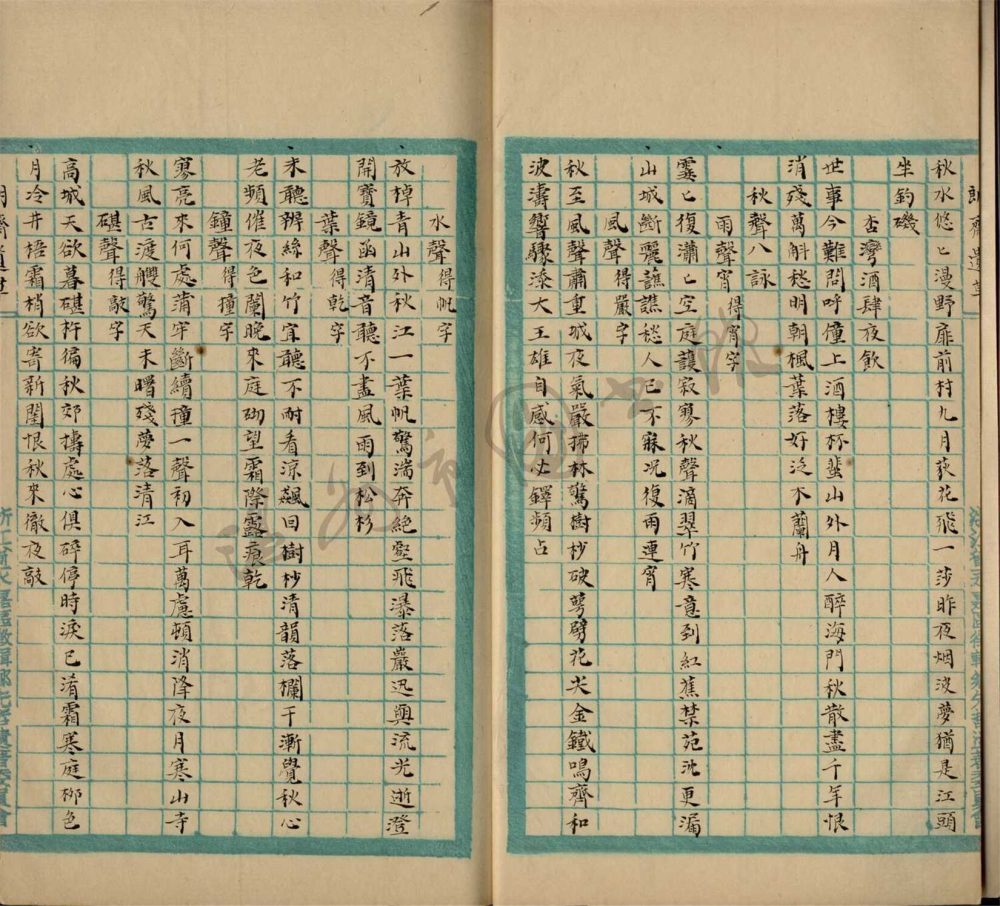 秋水悠〻漫野扉前村九月荻花飛一莎昨夜烟波夢猶是江頭
坐釣磯
杏灣酒肆夜飲
世事今難問呼僮上酒樓杯蜚山外月人醉海門秋散盡千年恨
消殘萬斛愁明朝楓葉落好泛木蘭舟
秋聲八詠
雨聲宵得宵字
霎〻復瀟〻空庭護寂寥秋聲滴翠竹寒意到紅蕉禁苑沈更漏
山城斷麗譙譙愁人已不寐况復雨連宵
風聲得嚴字
秋至風聲肅重城夜氣嚴掃林驚樹杪破萼劈花尖金鐵鳴齊和
波濤響驟添大王雄自感何必鐸頻占
水聲得帆字
放棹青山外秋江一葉帆驚湍奔絕壑飛瀑落巖迅輿流光逝澄
開寶鏡函清音聽不盡風雨到松杉
葉聲得乾字
未聽辨絲和竹宜聽不耐看涼飆回樹杪清韻落欄干漸覺秋心
老頻催夜色闌晚來庭砌望霜降露痕乾
鐘聲得撞字
寥亮來何處蒲牢斷續撞一聲初入耳萬慮頓消降夜月寒山寺
秋風古渡艭驚天未曙殘夢落清江
碪聲得敲字
高城天欲暮碪杵徧秋郊擣處心俱碎停時淚已淆霜寒庭柳色
月冷井梧霜梢欲寄新閨恨秋來徹夜敲